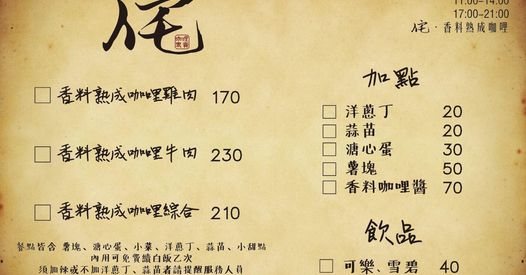 11:00-14:00
17:00-21:00
侘·香料熟成咖哩
侘
□ 香料熟成咖哩雞肉 170
□ 香料熟成咖哩牛肉 230
□ 香料熟成咖哩綜合 210
餐點皆含 薯塊、溏心蛋、小菜、洋蔥丁、蒜苗、小甜點
內用可免費續白飯乙次
須加辣或不加洋蔥丁、蒜苗者請提醒服務人員
加點
□ 洋蔥丁 20
□ 蒜苗 20
□ 溏心蛋 30
□ 薯塊 50
□ 香料咖哩醬 70
飲品
□ 可樂、雪碧 40